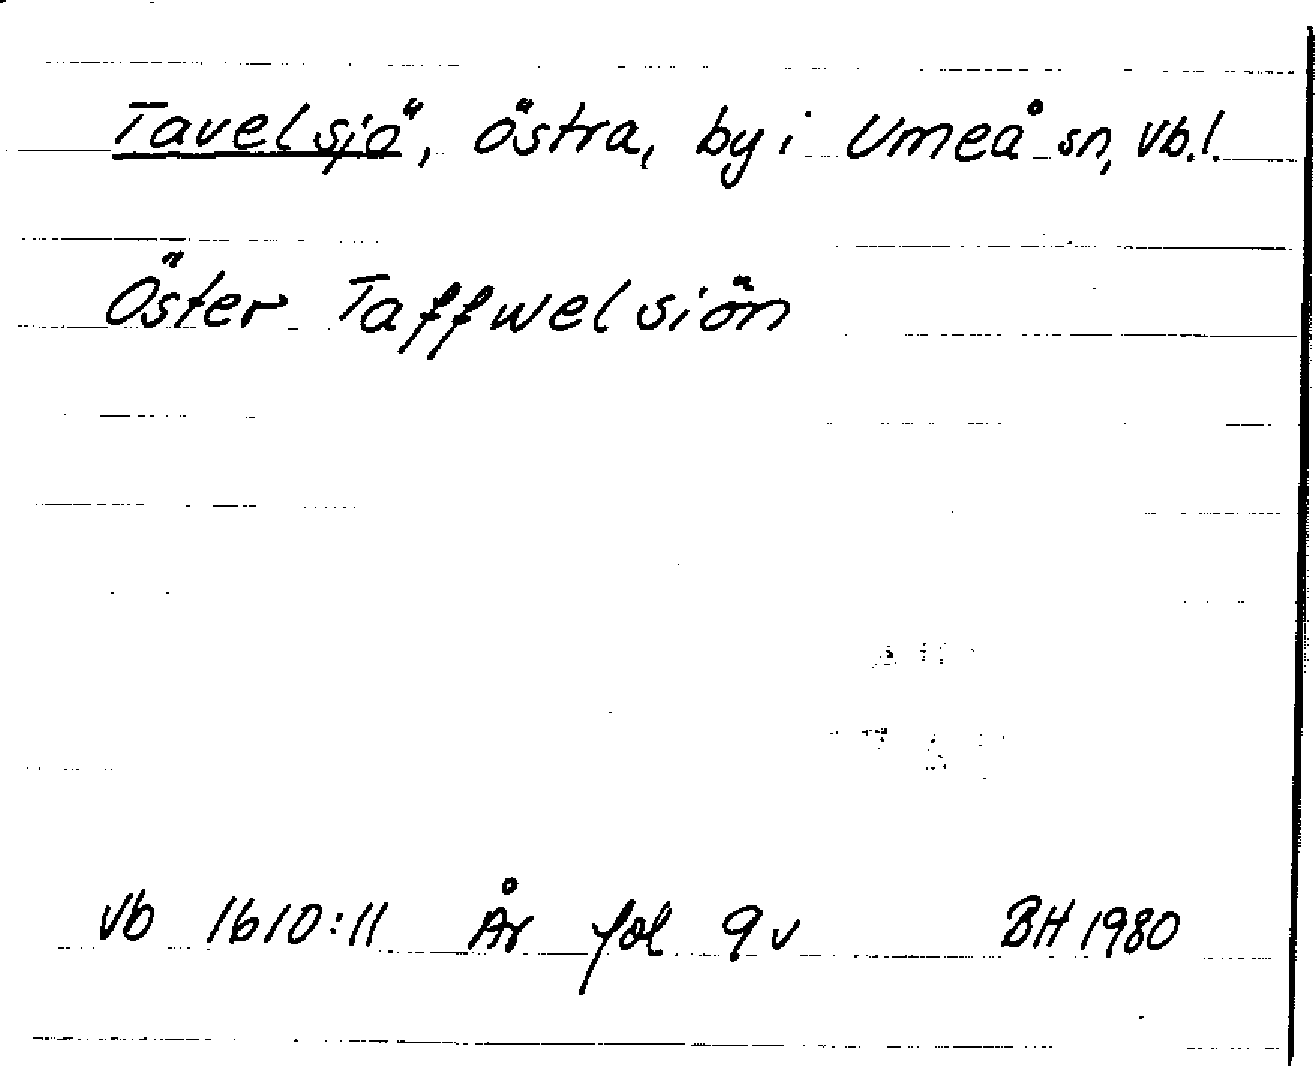 Tavelsjö, östra, by i Umeå sn, Vb.l.
Öster Taffwelsiön
Vb 1610:11 År fol 9v BH 1980